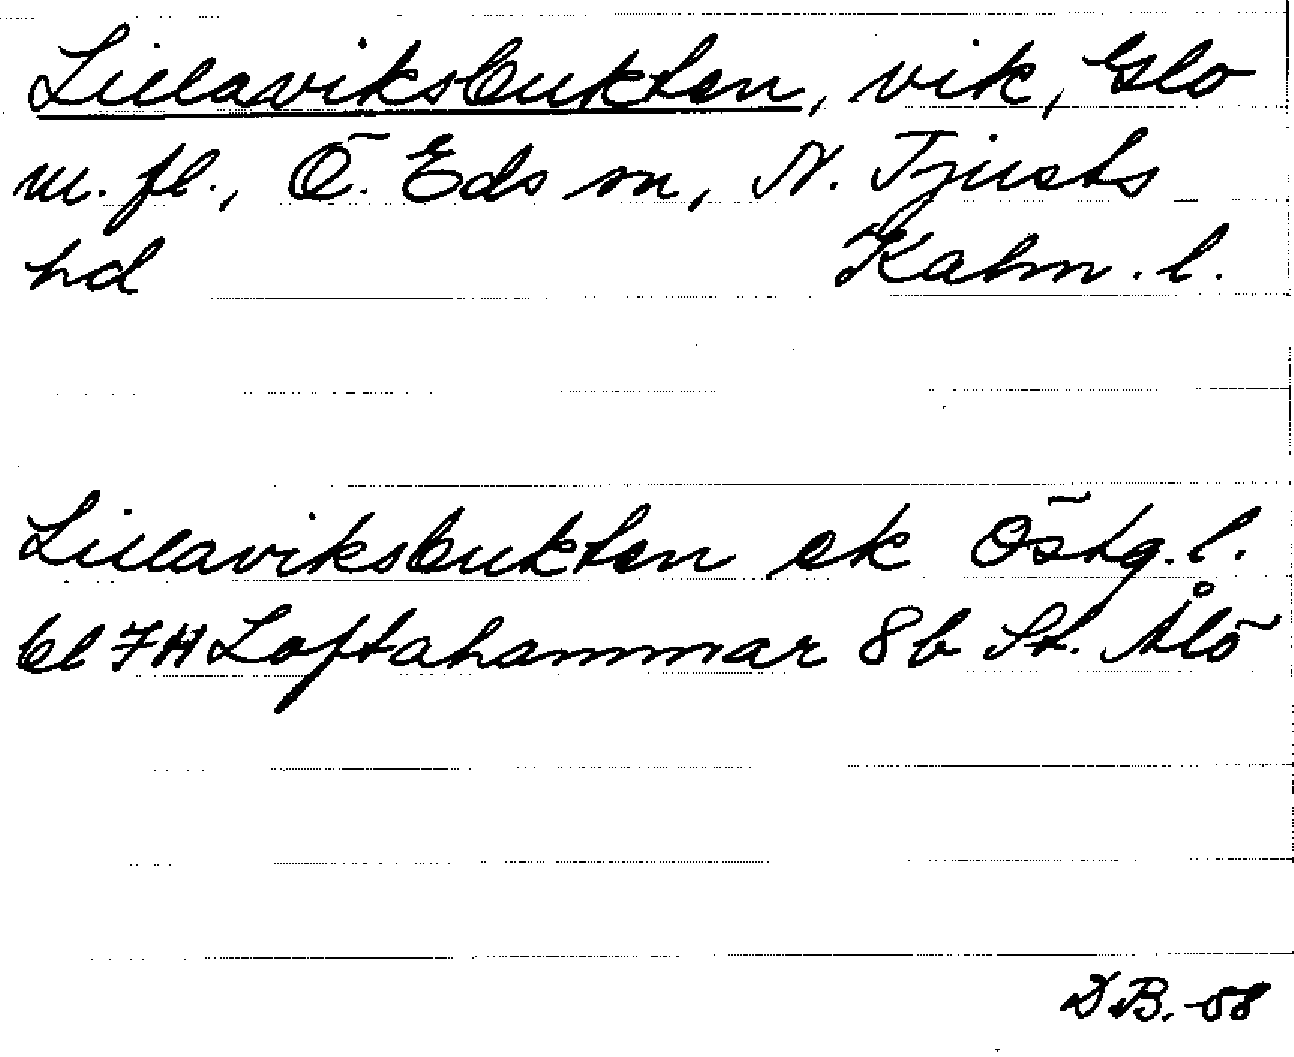 Lillaviksbukten, vik, Glo
m. fl., Ö. Eds sn, N. Tjusts
hd Kalm. l.
Lillaviksbukten ek Östg. l.
bl 7H Loftahammar 8b St. Ålö
D.B. -58